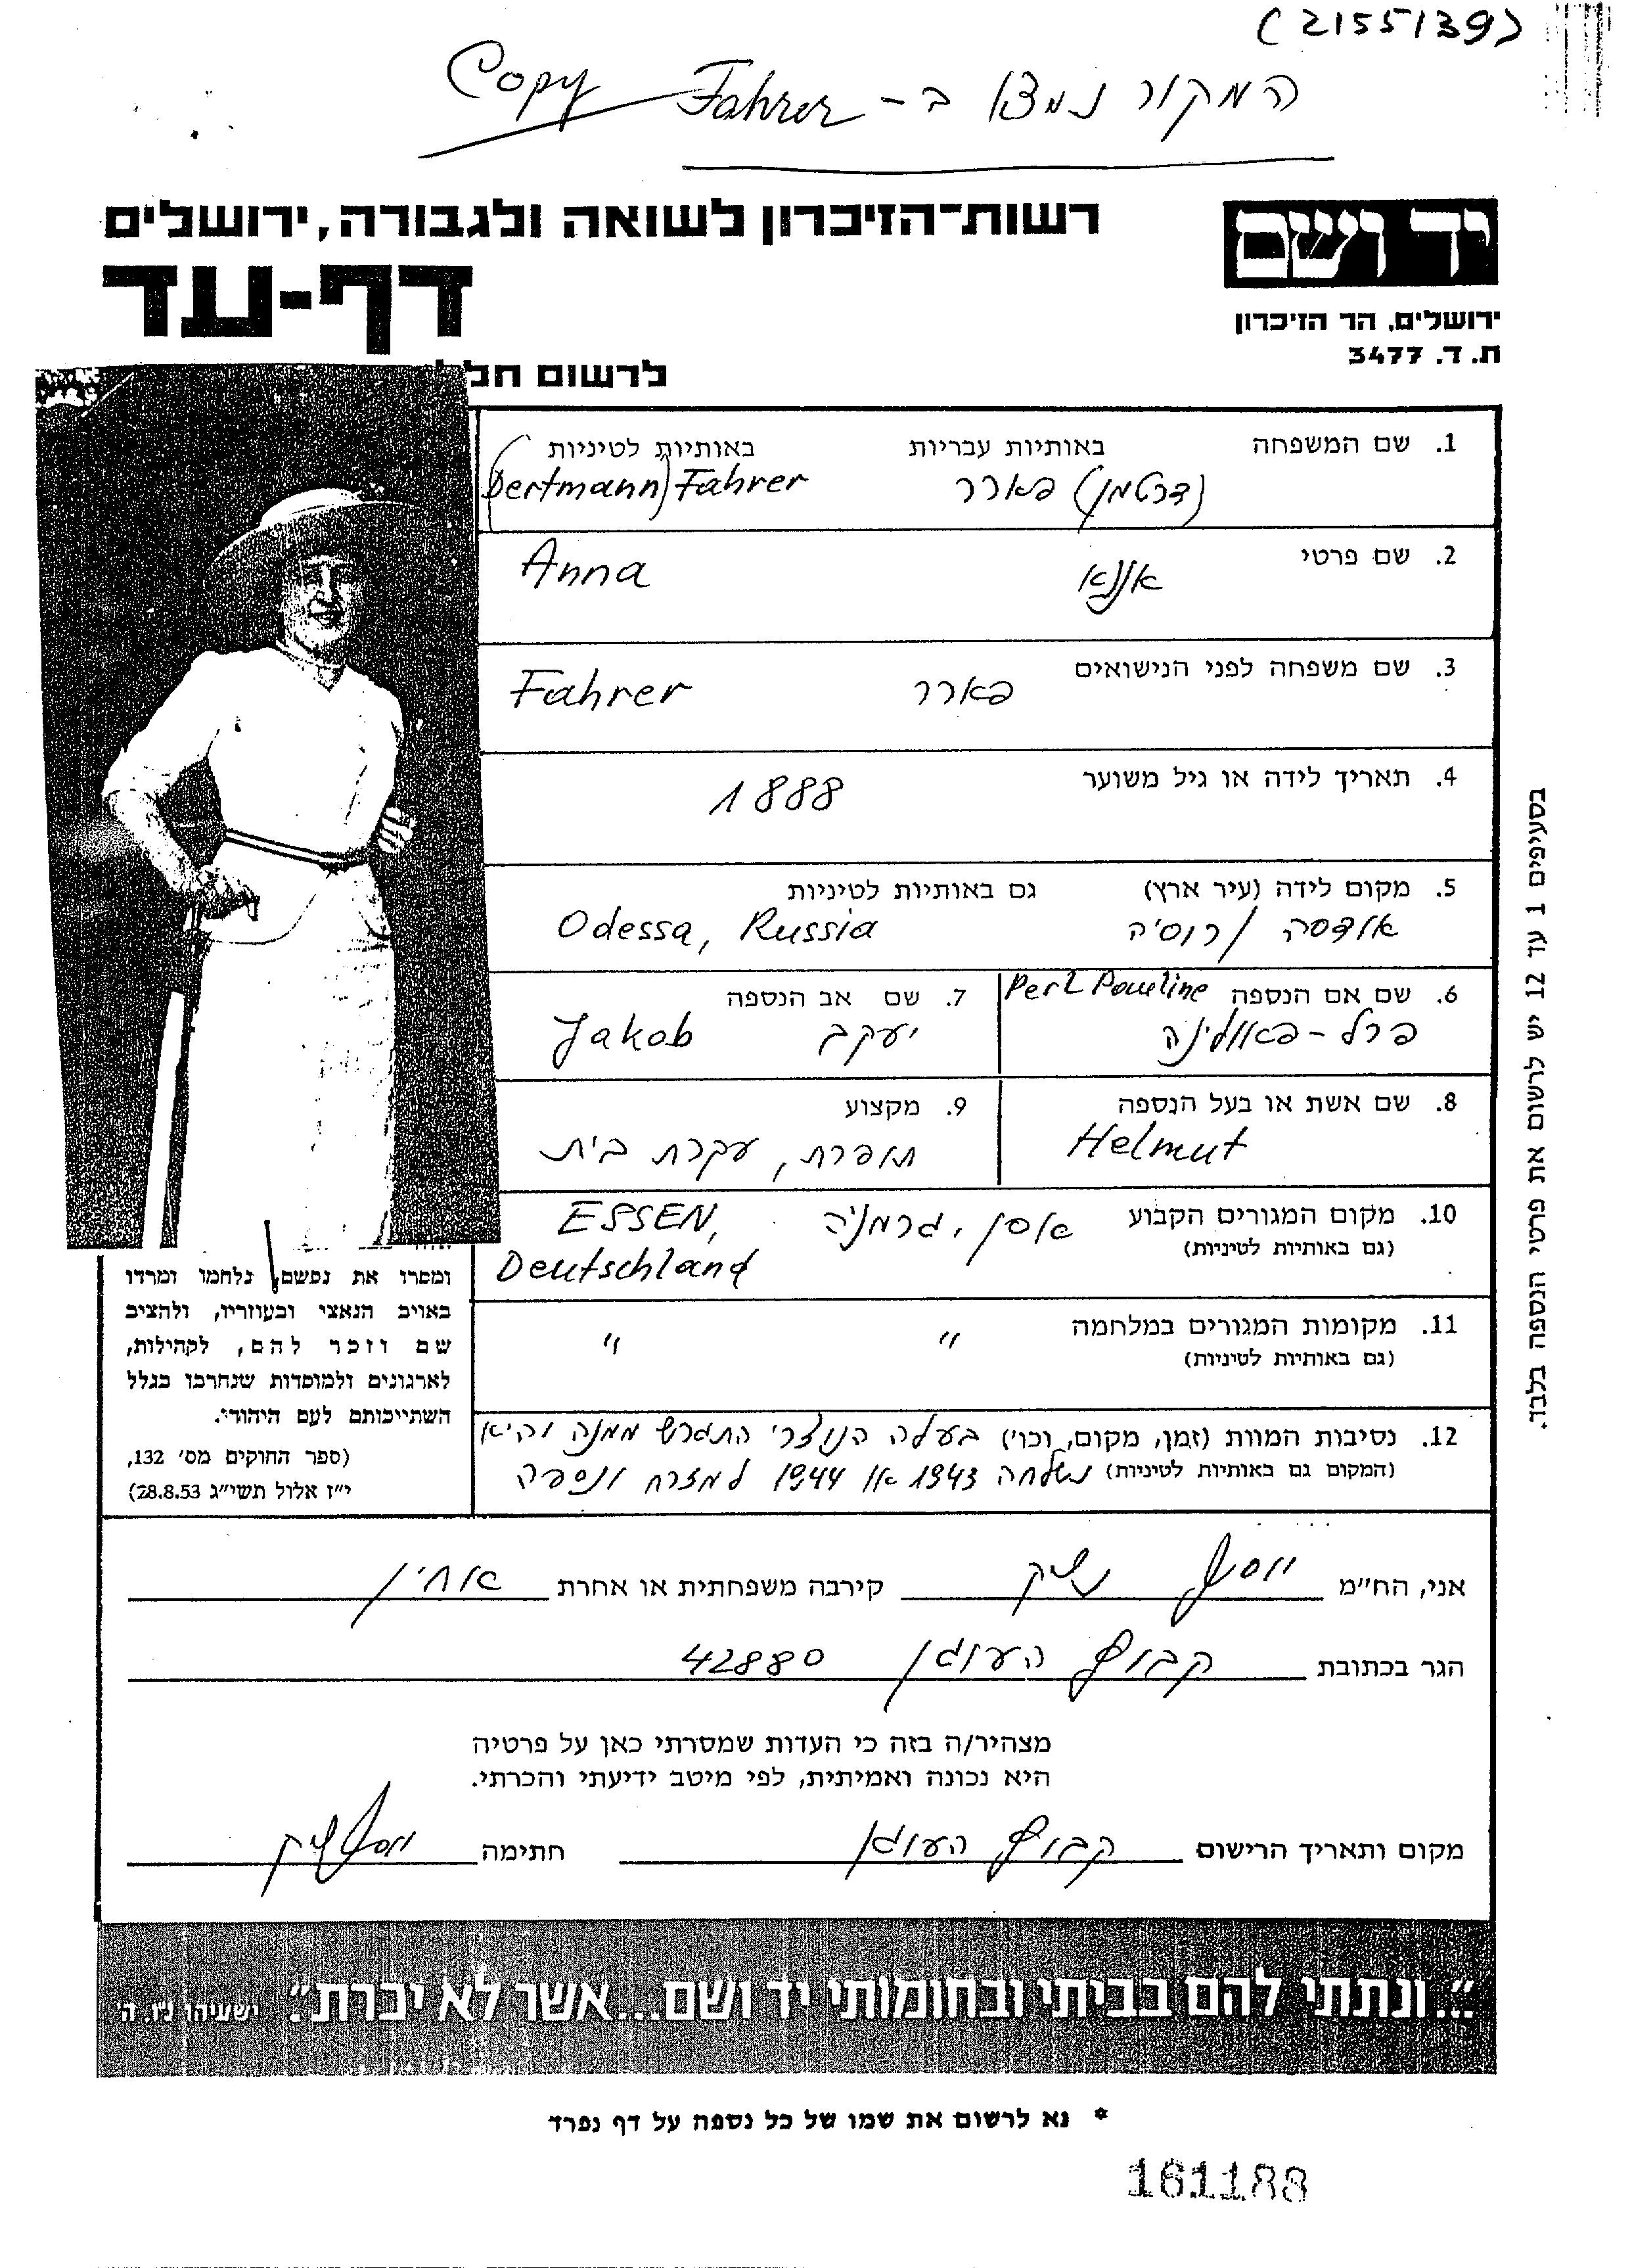 (2155139)
Copy Fahrer המקור נמצא ב-
יד ושם
רשות-הזיכרון לשואה ולגבורה, ירושלים
דף-עד
ירושלים, הר הזיכרון
ת. ד. 3477
לרשום חלל
1. שם המשפחה באותיות עבריות באותיות לטיניות
(דרטמן) פארר (Dertmann) Fahrer
2. שם פרטי
אננא Anna
3. שם משפחה לפני הנישואים
פארר Fahrer
4. תאריך לידה או גיל משוער
1888
5. מקום לידה (עיר ארץ) גם באותיות לטיניות
אודסה / רוסיה Odessa, Russia
6. שם אם הנספה Perl Pauline
פרל-פאולינה
7. שם אב הנספה
יעקב Jakob
8. שם אשת או בעל הנספה
Helmut
9. מקצוע
תופרת, עקרת בית
10. מקום המגורים הקבוע אסן, גרמניה ESSEN,
(גם באותיות לטיניות) Deutschland
11. מקומות המגורים במלחמה " "
(גם באותיות לטיניות)
12. נסיבות המוות (זמן, מקום, וכו') בעלה הנוצרי התגרש ממנה והיא
(המקום גם באותיות לטיניות) נשלחה 1943 או 1944 למזרח ונספה
ומסרו את נפשם, נלחמו ומרדו
באויב הנאצי ובעוזריו, ולהציב
שם וזכר להם, לקהילות,
לארגונים ולמוסדות שנחרבו בגלל
השתייכותם לעם היהודי.
(ספר החוקים מס' 132,
י"ז אלול תשי"ג 28.8.53)
בסעיפים 1 עד 12 יש לרשום את פרטי הנספה בלבד.
אני, הח"מ יוסף קירבה משפחתית או אחרת אחיין
הגר בכתובת קבוץ העוגן 42880
מצהיר/ה בזה כי העדות שמסרתי כאן על פרטיה
היא נכונה ואמיתית, לפי מיטב ידיעתי והכרתי.
מקום ותאריך הרישום קבוץ העוגן חתימה
"...ונתתי להם בביתי ובחומותי יד ושם...אשר לא יכרת". ישעיהו נ"ו, ה'
* נא לרשום את שמו של כל נספה על דף נפרד
161188